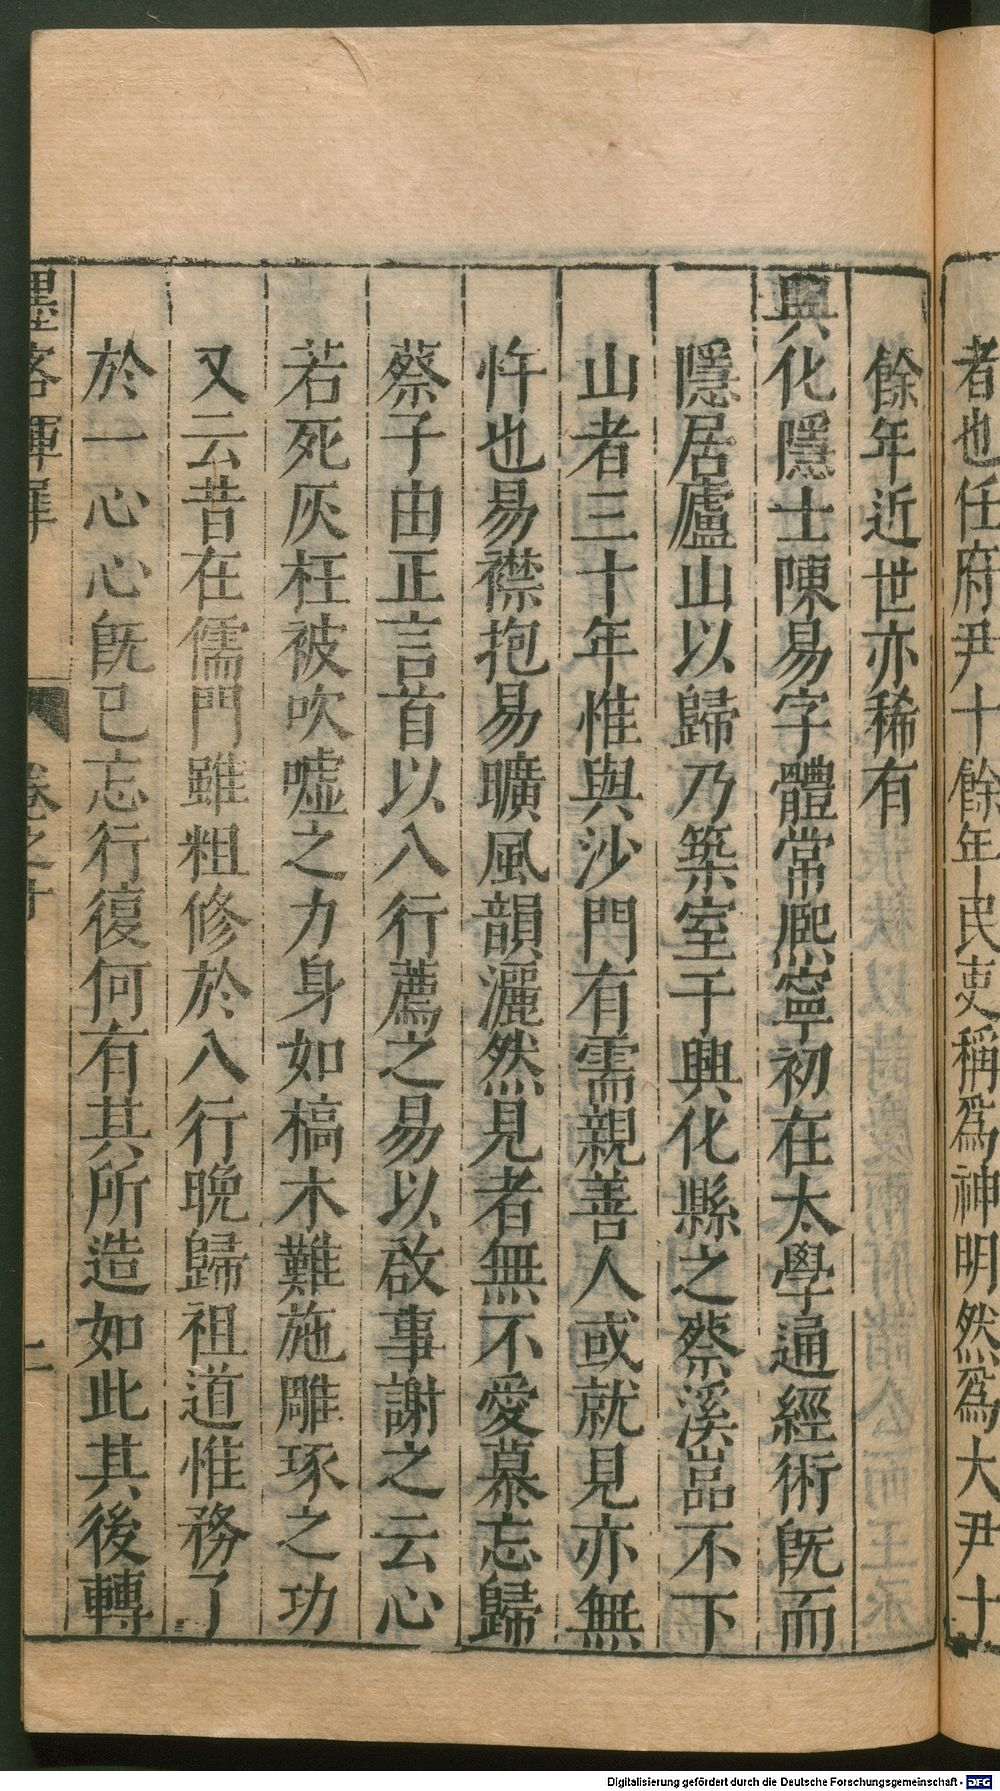 者也任府尹十餘年民吏稱為神明然為大尹十
餘年近世亦稀有
興化隱士陳易字體常熈寧初在太學通經術旣而
隱居廬山以歸乃築室于興化縣之蔡溪嵓不下
山者三十年惟與沙門有需親善人或就見亦無
忤也易襟抱易曠風韻灑然見者無不愛慕忘歸
蔡子由正言首以入行薦之易以啟事謝之云心
若死灰枉被吹噓之力身如槁木難施雕琢之功
又云昔在儒門雖粗修於入行晚歸祖道惟務了
於一心心旣已忘行復何有其所造如此其後轉
墨客揮犀 卷之十 二
Digitalisierung gefördert durch die Deutsche Forschungsgemeinschaft - DFG